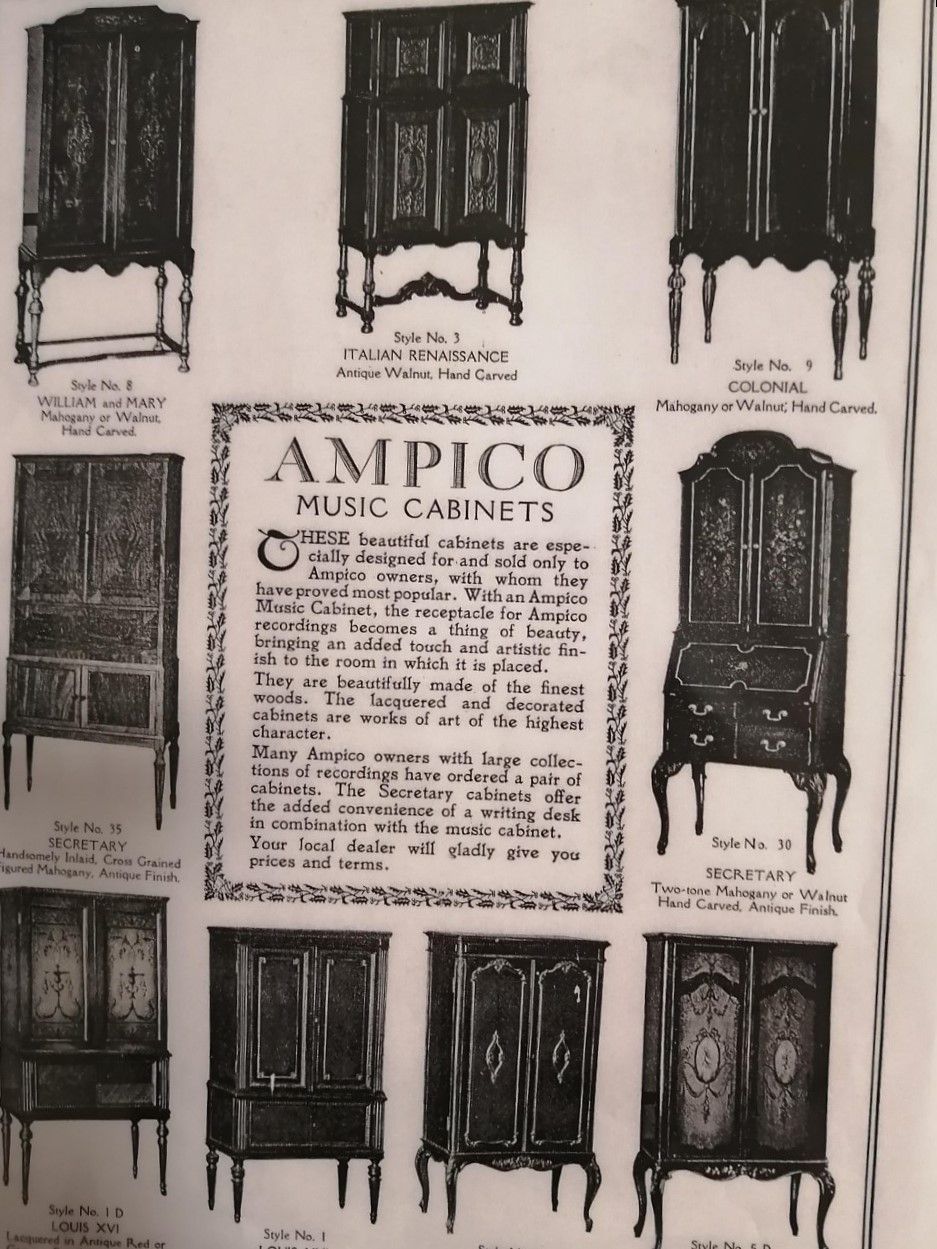 Style No. 3
ITALIAN RENAISSANCE
Antique Walnut, Hand Carved
Style No. 9
COLONIAL
Mahogany or Walnut, Hand Carved.
Style No. 8
WILLIAM and MARY
Mahogany or Walnut,
Hand Carved.
AMPICO
MUSIC CABINETS
THESE beautiful cabinets are espe-
cially designed for and sold only to
Ampico owners, with whom they
have proved most popular. With an Ampico
Music Cabinet, the receptacle for Ampico
recordings becomes a thing of beauty,
bringing an added touch and artistic fin-
ish to the room in which it is placed.
They are beautifully made of the finest
woods. The lacquered and decorated
cabinets are works of art of the highest
character.
Many Ampico owners with large collec-
tions of recordings have ordered a pair of
cabinets. The Secretary cabinets offer
the added convenience of a writing desk
in combination with the music cabinet.
Your local dealer will gladly give you
prices and terms.
Style No. 35
SECRETARY
Handsomely Inlaid, Cross Grained
Figured Mahogany, Antique Finish.
Style No. 30
SECRETARY
Two-tone Mahogany or Walnut
Hand Carved, Antique Finish.
Style No. 1 D
LOUIS XVI
Lacquered in Antique Red or
Style No. 1
LOUIS XVI
Style No. 5 D